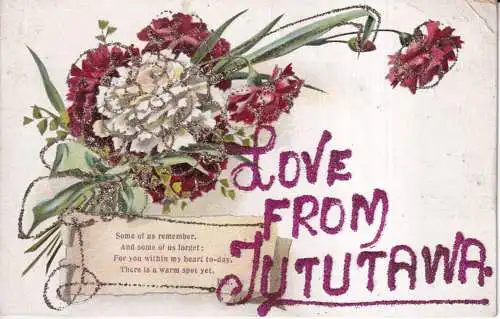 LOVE
FROM
TUTUTAWA.
Some of us remember,
And some of us forget;
For you within my heart to-day,
There is a warm spot yet.